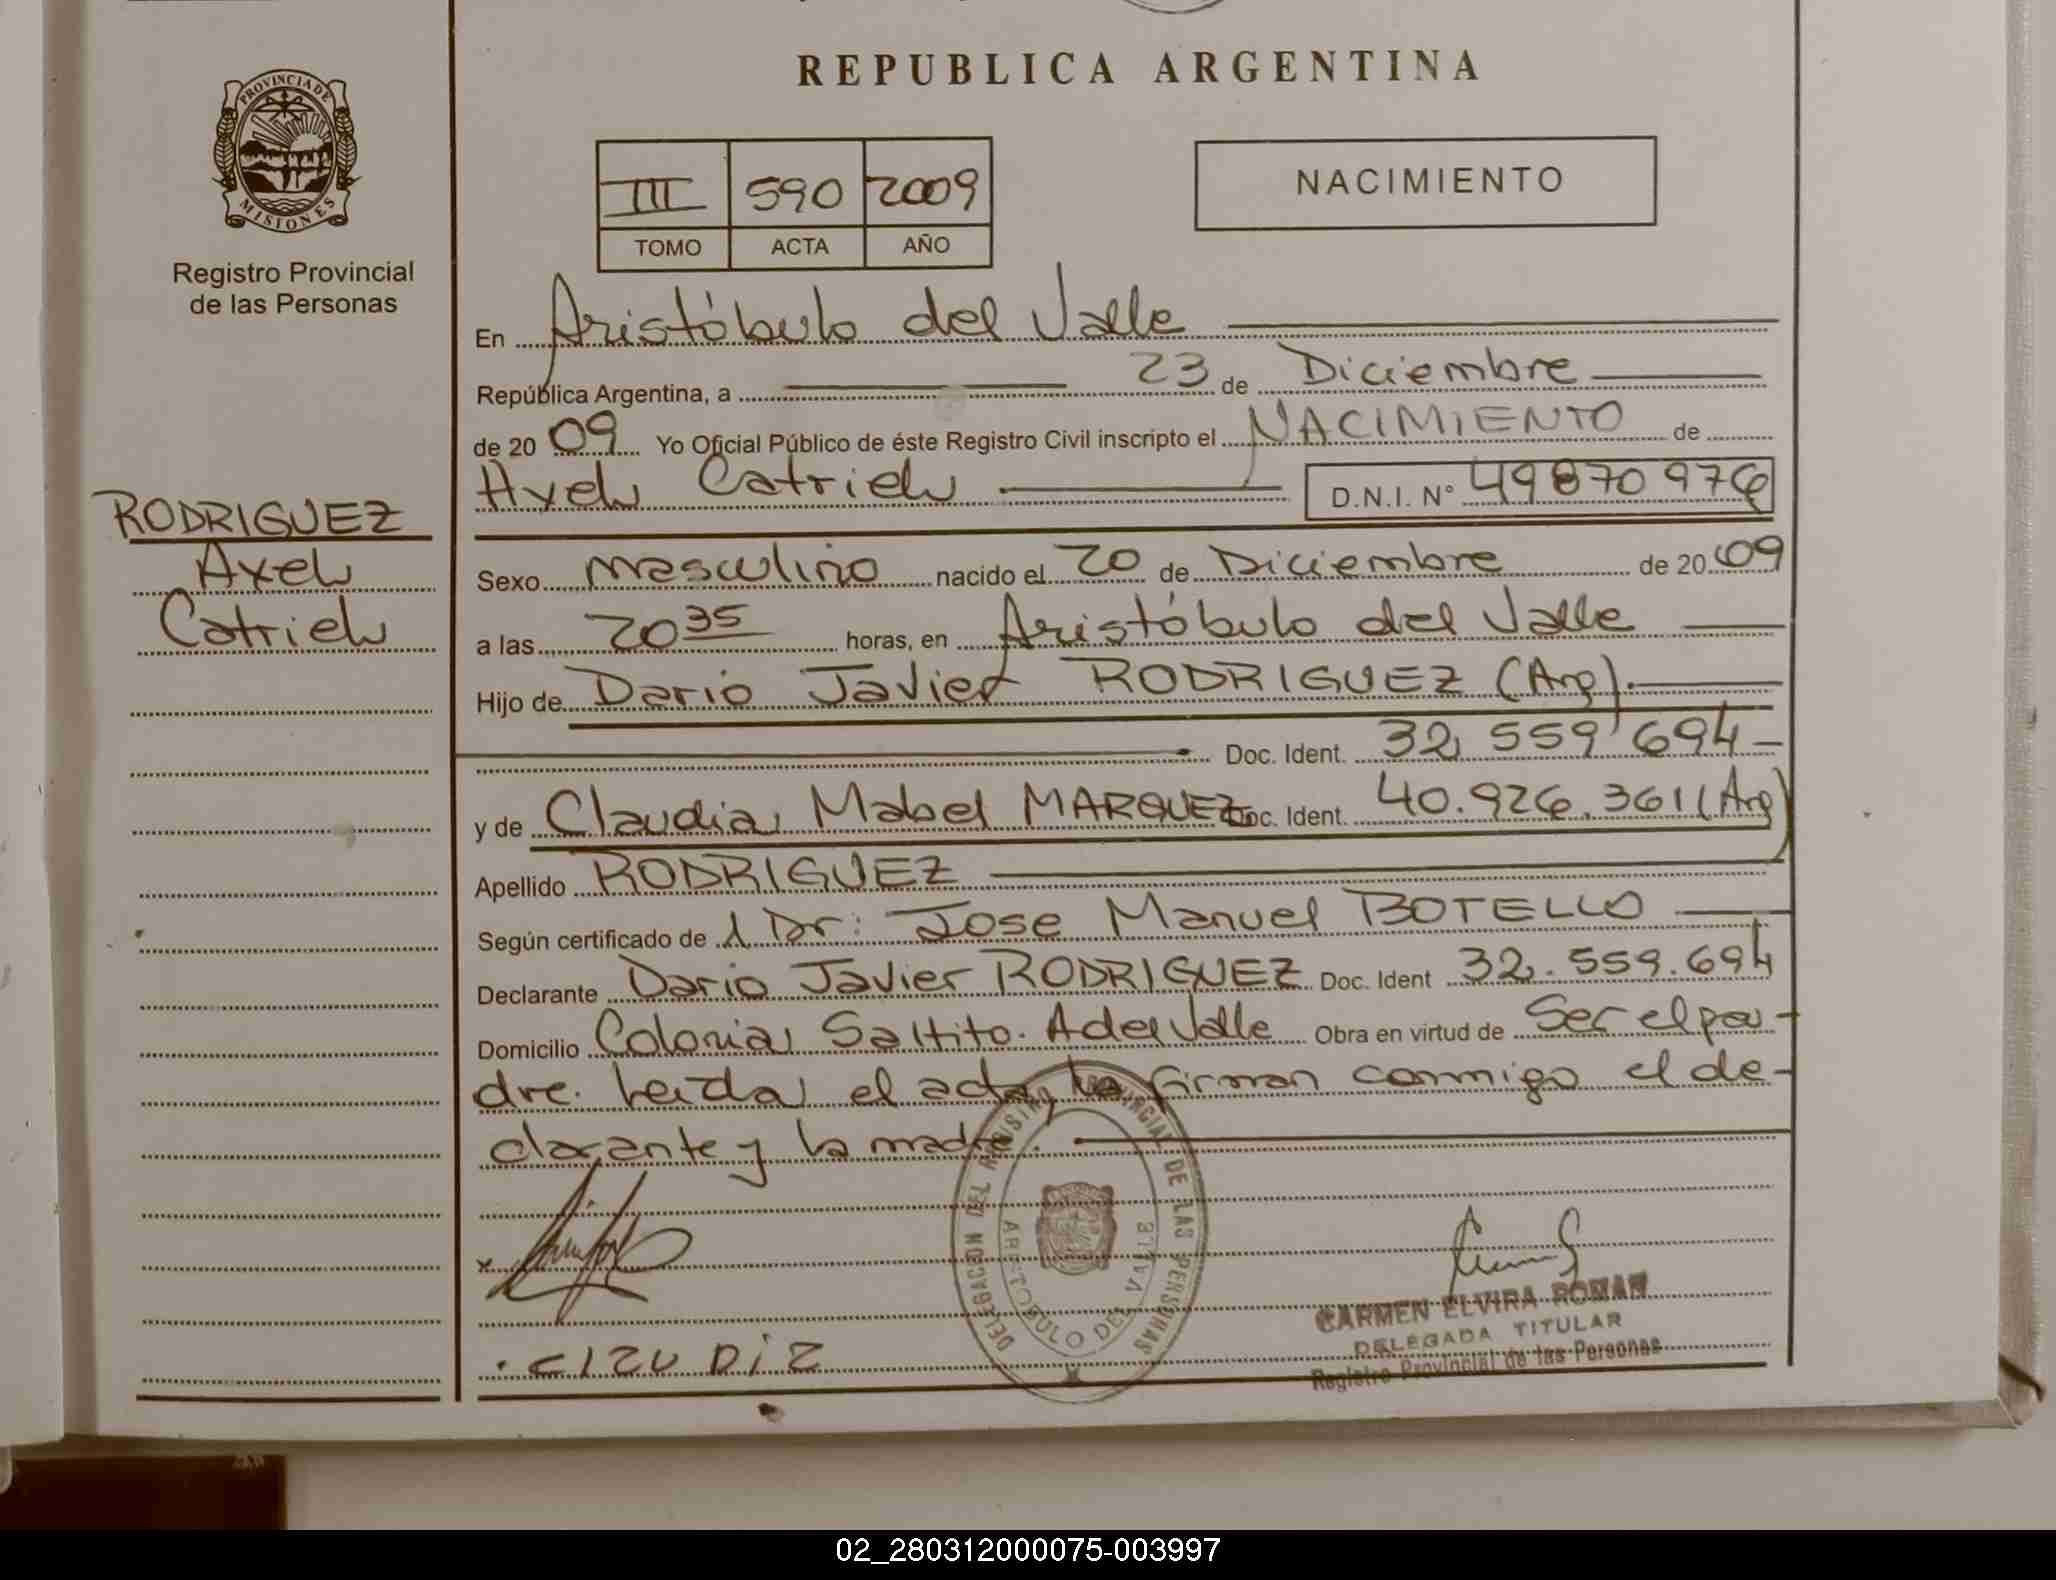 REPUBLICA ARGENTINA
PROVINCIA DE
MISIONES
Registro Provincial
de las Personas
III 590 2009
TOMO ACTA AÑO
NACIMIENTO
En Aristóbulo del Valle
República Argentina, a 23 de Diciembre
de 20 09 Yo Oficial Público de éste Registro Civil inscripto el NACIMIENTO de
Axel Catriel D.N.I. N° 49870976
RODRIGUEZ
Axel
Catriel
Sexo masculino nacido el 20 de Diciembre de 20 09
a las 20 35 horas, en Aristóbulo del Valle
Hijo de Dario Javier RODRIGUEZ (Arg).
Doc. Ident. 32.559.694
y de Claudia Mabel MARQUEZ Doc. Ident. 40.926.361 (Arg)
Apellido RODRIGUEZ
Según certificado de Dr: Jose Manuel BOTELLO
Declarante Dario Javier RODRIGUEZ Doc. Ident 32.559.694
Domicilio Colonia Saltito. A del Valle Obra en virtud de Ser el pa-
dre. Leida el acta, la firman conmigo el de-
clarante y la madre.
DELEGACION DEL REGISTRO PROVINCIAL DE LAS PERSONAS
ARISTOBULO DEL VALLE
CARMEN ELVIRA ROMAN
DELEGADA TITULAR
Registro Provincial de las Personas
02_280312000075-003997